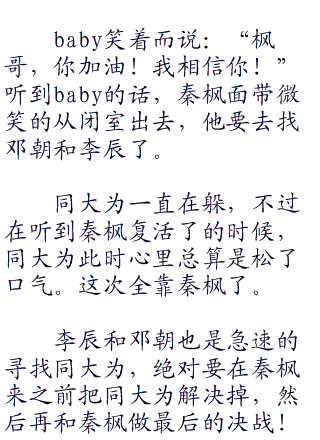 baby笑着而说：“枫
哥，你加油！我相信你！”
听到baby的话，秦枫面带微
笑的从闭室出去，他要去找
邓朝和李辰了。
同大为一直在躲，不过
在听到秦枫复活了的时候，
同大为此时心里总算是松了
口气。这次全靠秦枫了。
李辰和邓朝也是急速的
寻找同大为，绝对要在秦枫
来之前把同大为解决掉，然
后再和秦枫做最后的决战！